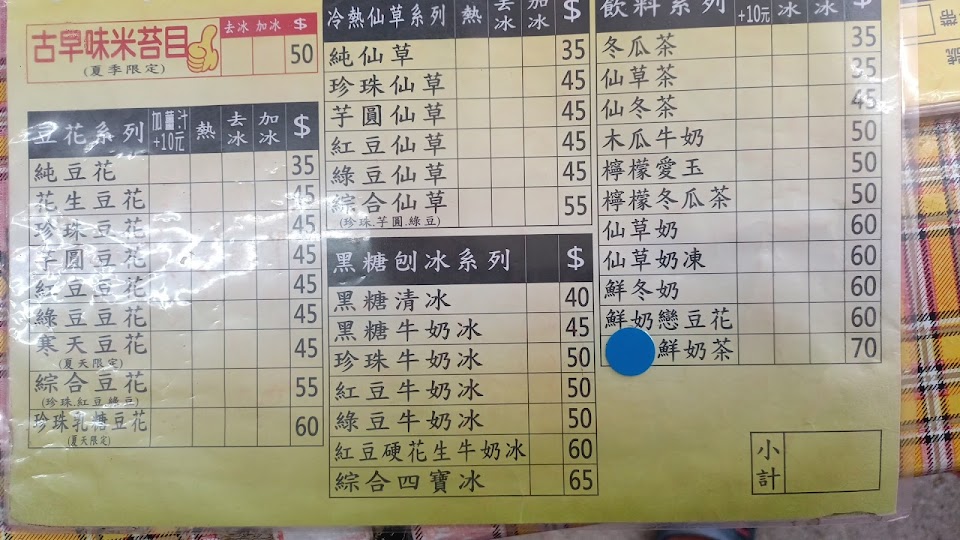 古早味米苔目 去冰 加冰 $
(夏季限定) 50
豆花系列 加薑汁+10元 熱 去冰 加冰 $
純豆花 35
花生豆花 45
珍珠豆花 45
芋圓豆花 45
紅豆豆花 45
綠豆豆花 45
寒天豆花 45
(夏天限定)
綜合豆花 55
(珍珠.紅豆.綠豆)
珍珠乳糖豆花 60
(夏天限定)
冷熱仙草系列 熱 去冰 加冰 $
純仙草 35
珍珠仙草 45
芋圓仙草 45
紅豆仙草 45
綠豆仙草 45
綜合仙草 55
(珍珠.芋圓.綠豆)
黑糖刨冰系列 $
黑糖清冰 40
黑糖牛奶冰 45
珍珠牛奶冰 50
紅豆牛奶冰 50
綠豆牛奶冰 50
紅豆硬花生牛奶冰 60
綜合四寶冰 65
飲料系列 +10元 冰 冰 $
冬瓜茶 35
仙草茶 35
仙冬茶 45
木瓜牛奶 50
檸檬愛玉 50
檸檬冬瓜茶 50
仙草奶 60
仙草奶凍 60
鮮冬奶 60
鮮奶戀豆花 60
鮮奶茶 70
小計
帶
號